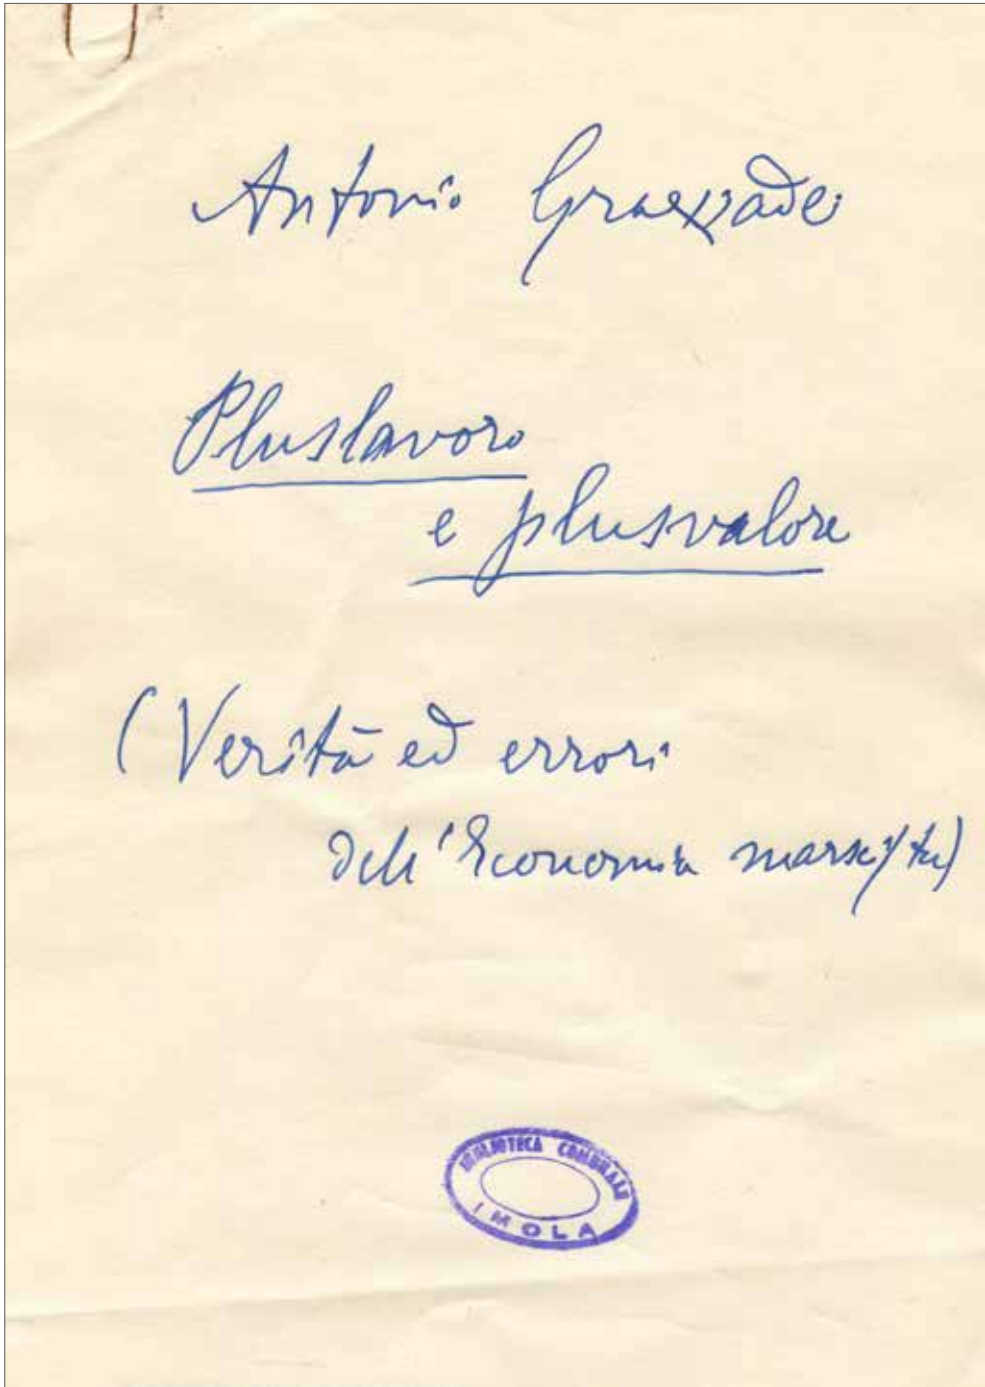 Antonio Graziadei
Pluslavoro
e plusvalore
(Verità ed errori
dell'Economia marxista)
BIBLIOTECA COMUNALE
IMOLA